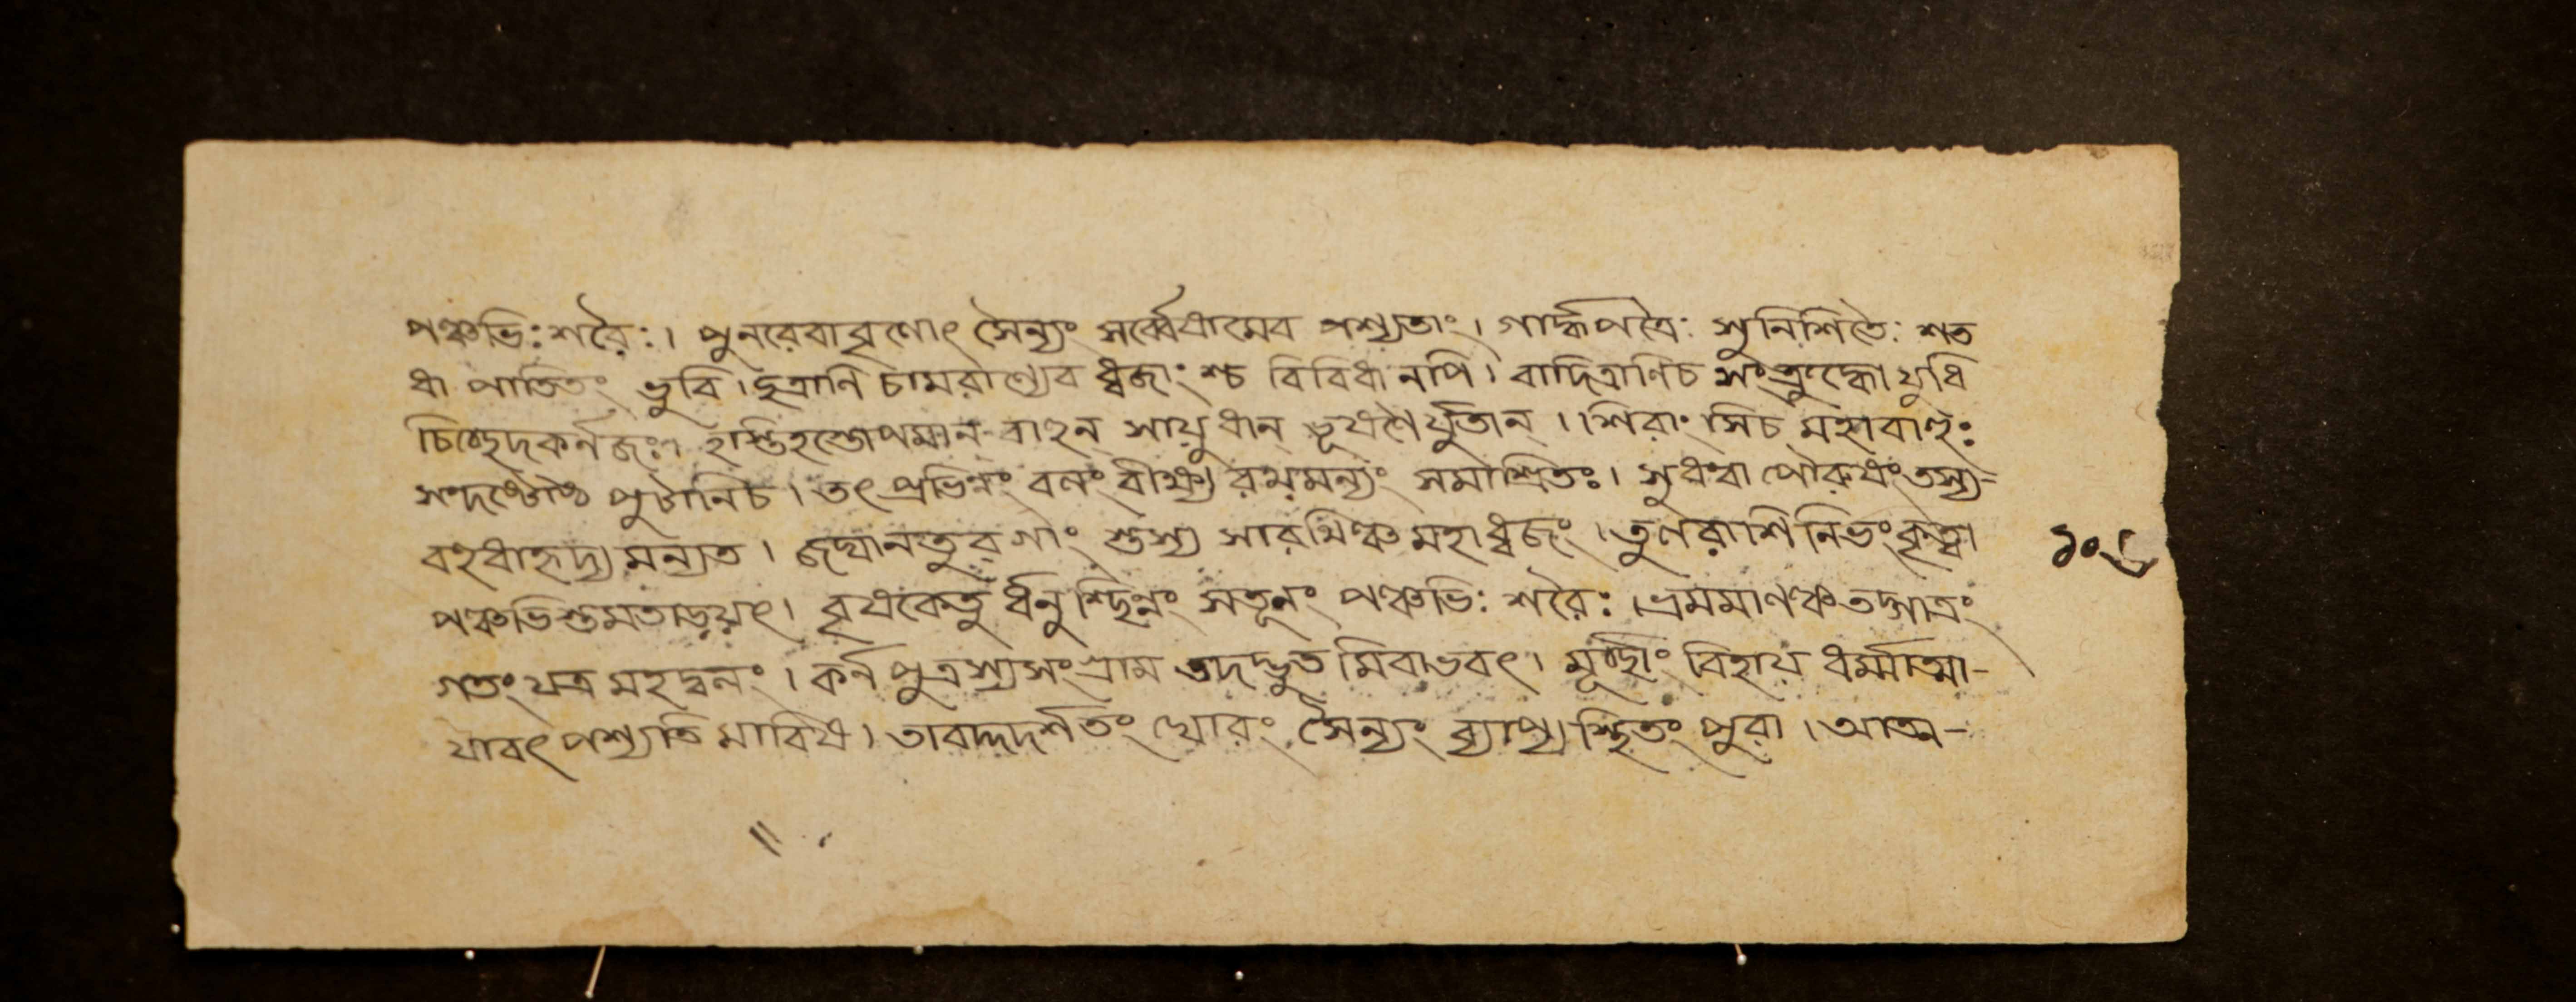 পঞ্চভিঃ শরৈঃ। পুনরেবাবৃণোৎ সৈন্যং সর্ব্বেষামেব পশ্যতাং। গার্দ্ধপত্রৈঃ সুনিশিতৈঃ শত
ধা পাতিতং ভুবি। ছত্রানি চামরাণ্যেব ধ্বজাংশ্চ বিবিধানপি। বাদিত্রাণিচ সংক্রুদ্ধো যুধি
চিচ্ছেদকর্নজঃ। হস্তিহস্তোপমান বাহন্ সায়ুধান্ ভূষণৈর্যুতান্।। শিরাংসিচ মহাবাহুঃ
সন্দষ্টৌষ্ঠ পুটানিচ। তৎ প্রভিন্নং বলং বীক্ষ্য রথমন্যং সমাশ্রিতঃ। সুধন্বা পৌরুষং তস্য-
বহধাহৃদ্য মন্যত। জঘানতুরগাং স্তস্য সারথিঞ্চ মহাধ্বজং। তৃণরাশি নিভং কৃত্বা
পঞ্চভিস্তমতাড়য়ৎ। বৃষকেতু র্ধনুশ্ছিন্নং সতূনং পঞ্চভিঃ শরৈঃ। ভ্রমমাণঞ্চ তদ্গাত্রং
গতং যত্র মহদ্বলং। কর্নপুত্রস্যসংগ্রাম তদদ্ভুত মিবাভবৎ। মূর্চ্ছাং বিহায় ধর্ম্মাত্মা-
যাবৎ পশ্যতি মারিষ। তাবদ্দদর্শতং ঘোরং সৈন্যং ব্যাপ্য স্থিতং পুরা। আত্ম-